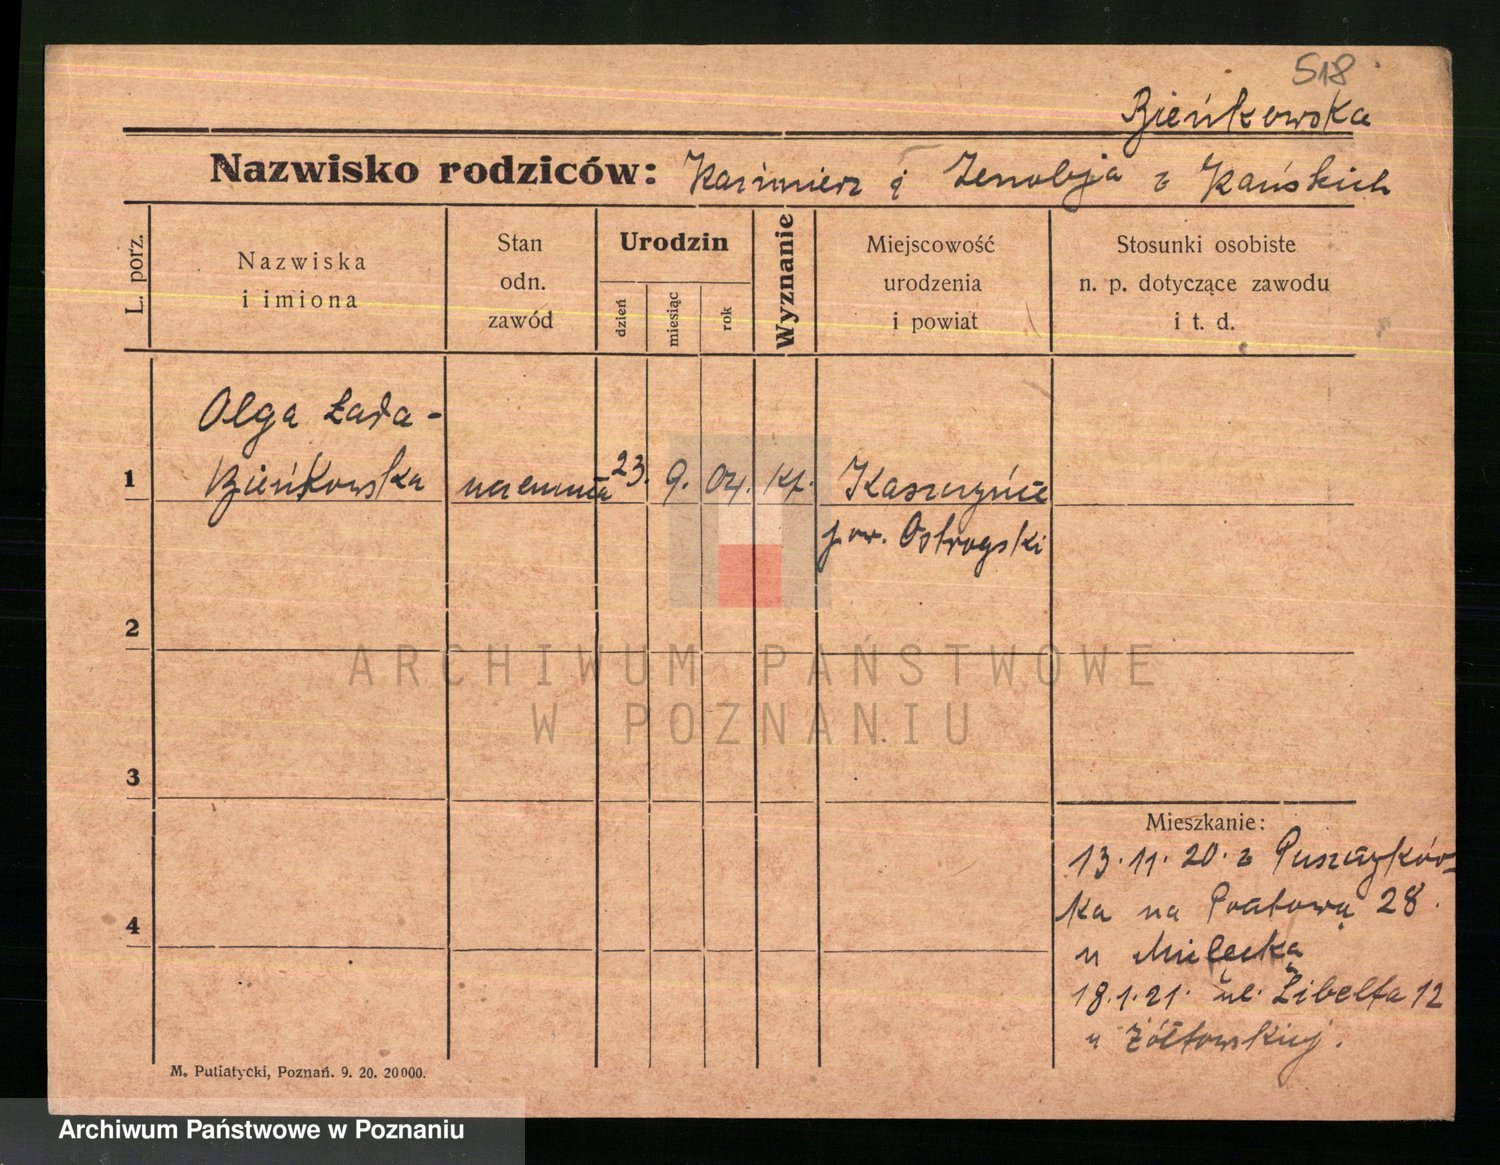 518
Bieńkowska
Nazwisko rodziców: Kazimierz i Zenobja z Kańskich
L. porz.
Nazwiska
i imiona
Stan
odn.
zawód
Urodzin
dzień
miesiąc
rok
Wyznanie
Miejscowość
urodzenia
i powiat
Stosunki osobiste
n. p. dotyczące zawodu
i t. d.
Olga Łada-
1 Bieńkowska 23. 9. 04. kt.
pow. Ostrogski
2
ARCHIWUM PAŃSTWOWE
W POZNANIU
3
Mieszkanie:
13.11.20. z Puszczyków-
4 ka na 28.
u Mielęcka
18.1.21. ul. Libelta 12
u Żółtowskiej.
M. Putiatycki, Poznań. 9. 20. 20000.
Archiwum Państwowe w Poznaniu